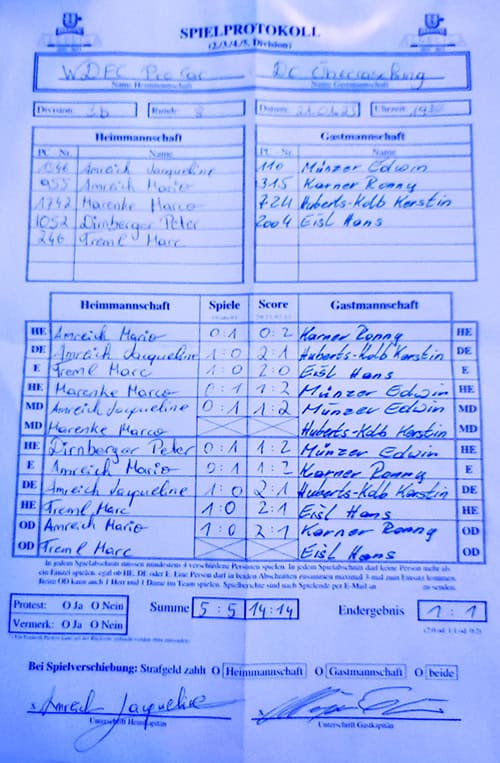 SPIELPROTOKOLL
(2./3./4./5. Division)
WDEC ProCar DC Überraschung
Name Heimmannschaft Name Gastmannschaft
Division 3b Runde 8 Datum Uhrzeit
Heimmannschaft Gastmannschaft
PC Nr. Name PC Nr. Name
1546 Amreich Jacqueline 110 Münzer Edwin
955 Amreich Mario 315 Karner Ronny
1742 Marenke Marco 724 Huberts-Kolb Kerstin
1052 Dirnberger Peter 2004 Eisl Hans
246 Treml Marc
Heimmannschaft Spiele Score Gastmannschaft
HE Amreich Mario 0:1 0:2 Karner Ronny HE
DE Amreich Jacqueline 1:0 2:1 Huberts-Kolb Kerstin DE
E Treml Marc 1:0 2:0 Eisl Hans E
HE Marenke Marco 0:1 1:2 Münzer Edwin HE
MD Amreich Jacqueline 0:1 1:2 Münzer Edwin MD
MD Marenke Marco Huberts-Kolb Kerstin MD
HE Dirnberger Peter 0:1 1:2 Münzer Edwin HE
E Amreich Mario 0:1 1:2 Karner Ronny E
DE Amreich Jacqueline 1:0 2:1 Huberts-Kolb Kerstin DE
HE Treml Marc 1:0 2:1 Eisl Hans HE
OD Amreich Mario 1:0 2:1 Karner Ronny OD
OD Treml Marc Eisl Hans OD
In jedem Spielabschnitt müssen mindestens 4 verschiedene Personen spielen. In jedem Spielabschnitt darf keine Person mehr als
ein Einzel spielen, egal ob HE, DE oder E. Eine Person darf in beiden Abschnitten zusammen maximal 3 mal zum Einsatz kommen.
Beim OD kann auch 1 Herr und 1 Dame im Team spielen. Spielberichte sind nach Spielende per E-Mail an zu senden.
Protest: O Ja O Nein Summe 5:5 14:14 Endergebnis 1:1
Vermerk: O Ja O Nein (2:0 od. 1:1 od. 0:2)
Bei Spielverschiebung: Strafgeld zahlt O Heimmannschaft O Gastmannschaft O beide
x Amreich Jacqueline x
Unterschrift Heimkapitän Unterschrift Gastkapitän